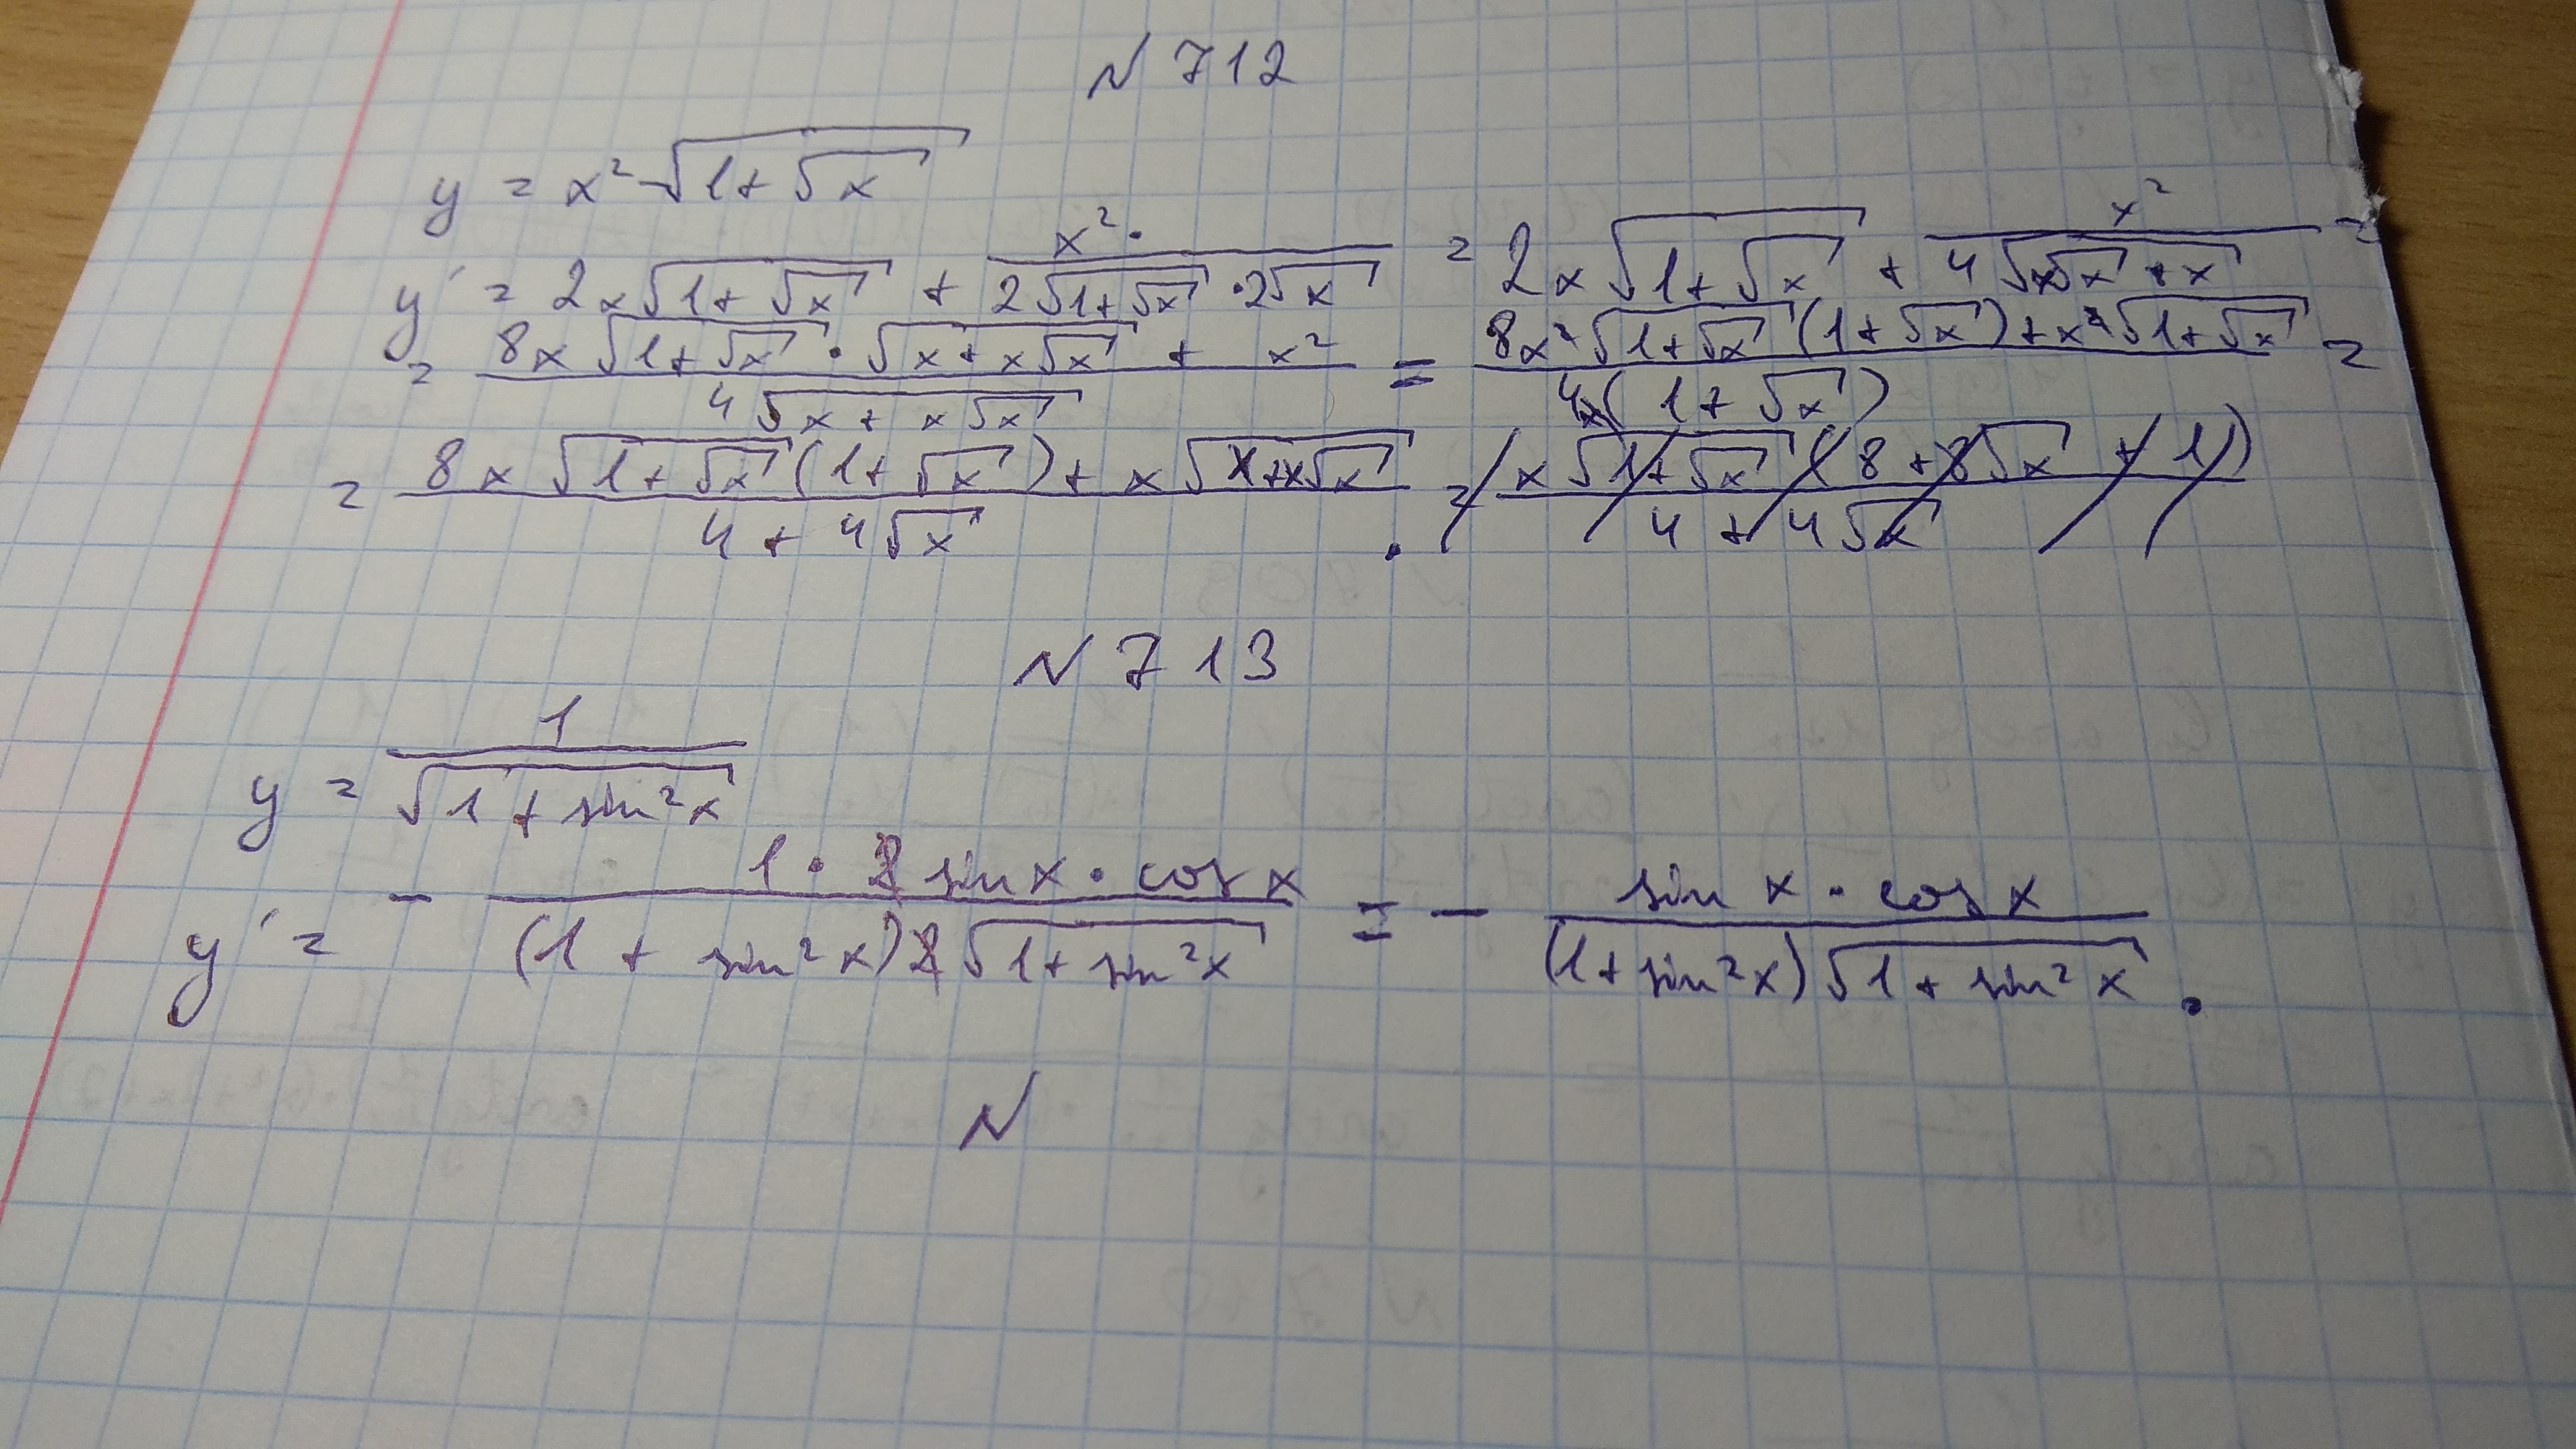 N 712
y = x² √(1+√x)
y' = 2x√(1+√x) + x²· / (2√(1+√x) · 2√x) = 2x√(1+√x) + x² / (4√(x√x + x)) =
= (8x√(1+√x) · √(x + x√x) + x²) / (4√(x + x√x)) = (8x²√(1+√x) (1+√x) + x²√(1+√x)) / (4x(1+√x)) =
= (8x√(1+√x) (1+√x) + x√(x+x√x)) / (4 + 4√x) . = x√(1+√x) (8+8√x + 1) / (4 + 4√x)
N 713
y = 1 / √(1 + sin²x)
y' = - (1 · 2 sin x · cos x) / ((1 + sin²x) 2√(1 + sin²x)) = - (sin x · cos x) / ((1+sin²x)√(1 + sin²x)) .
N